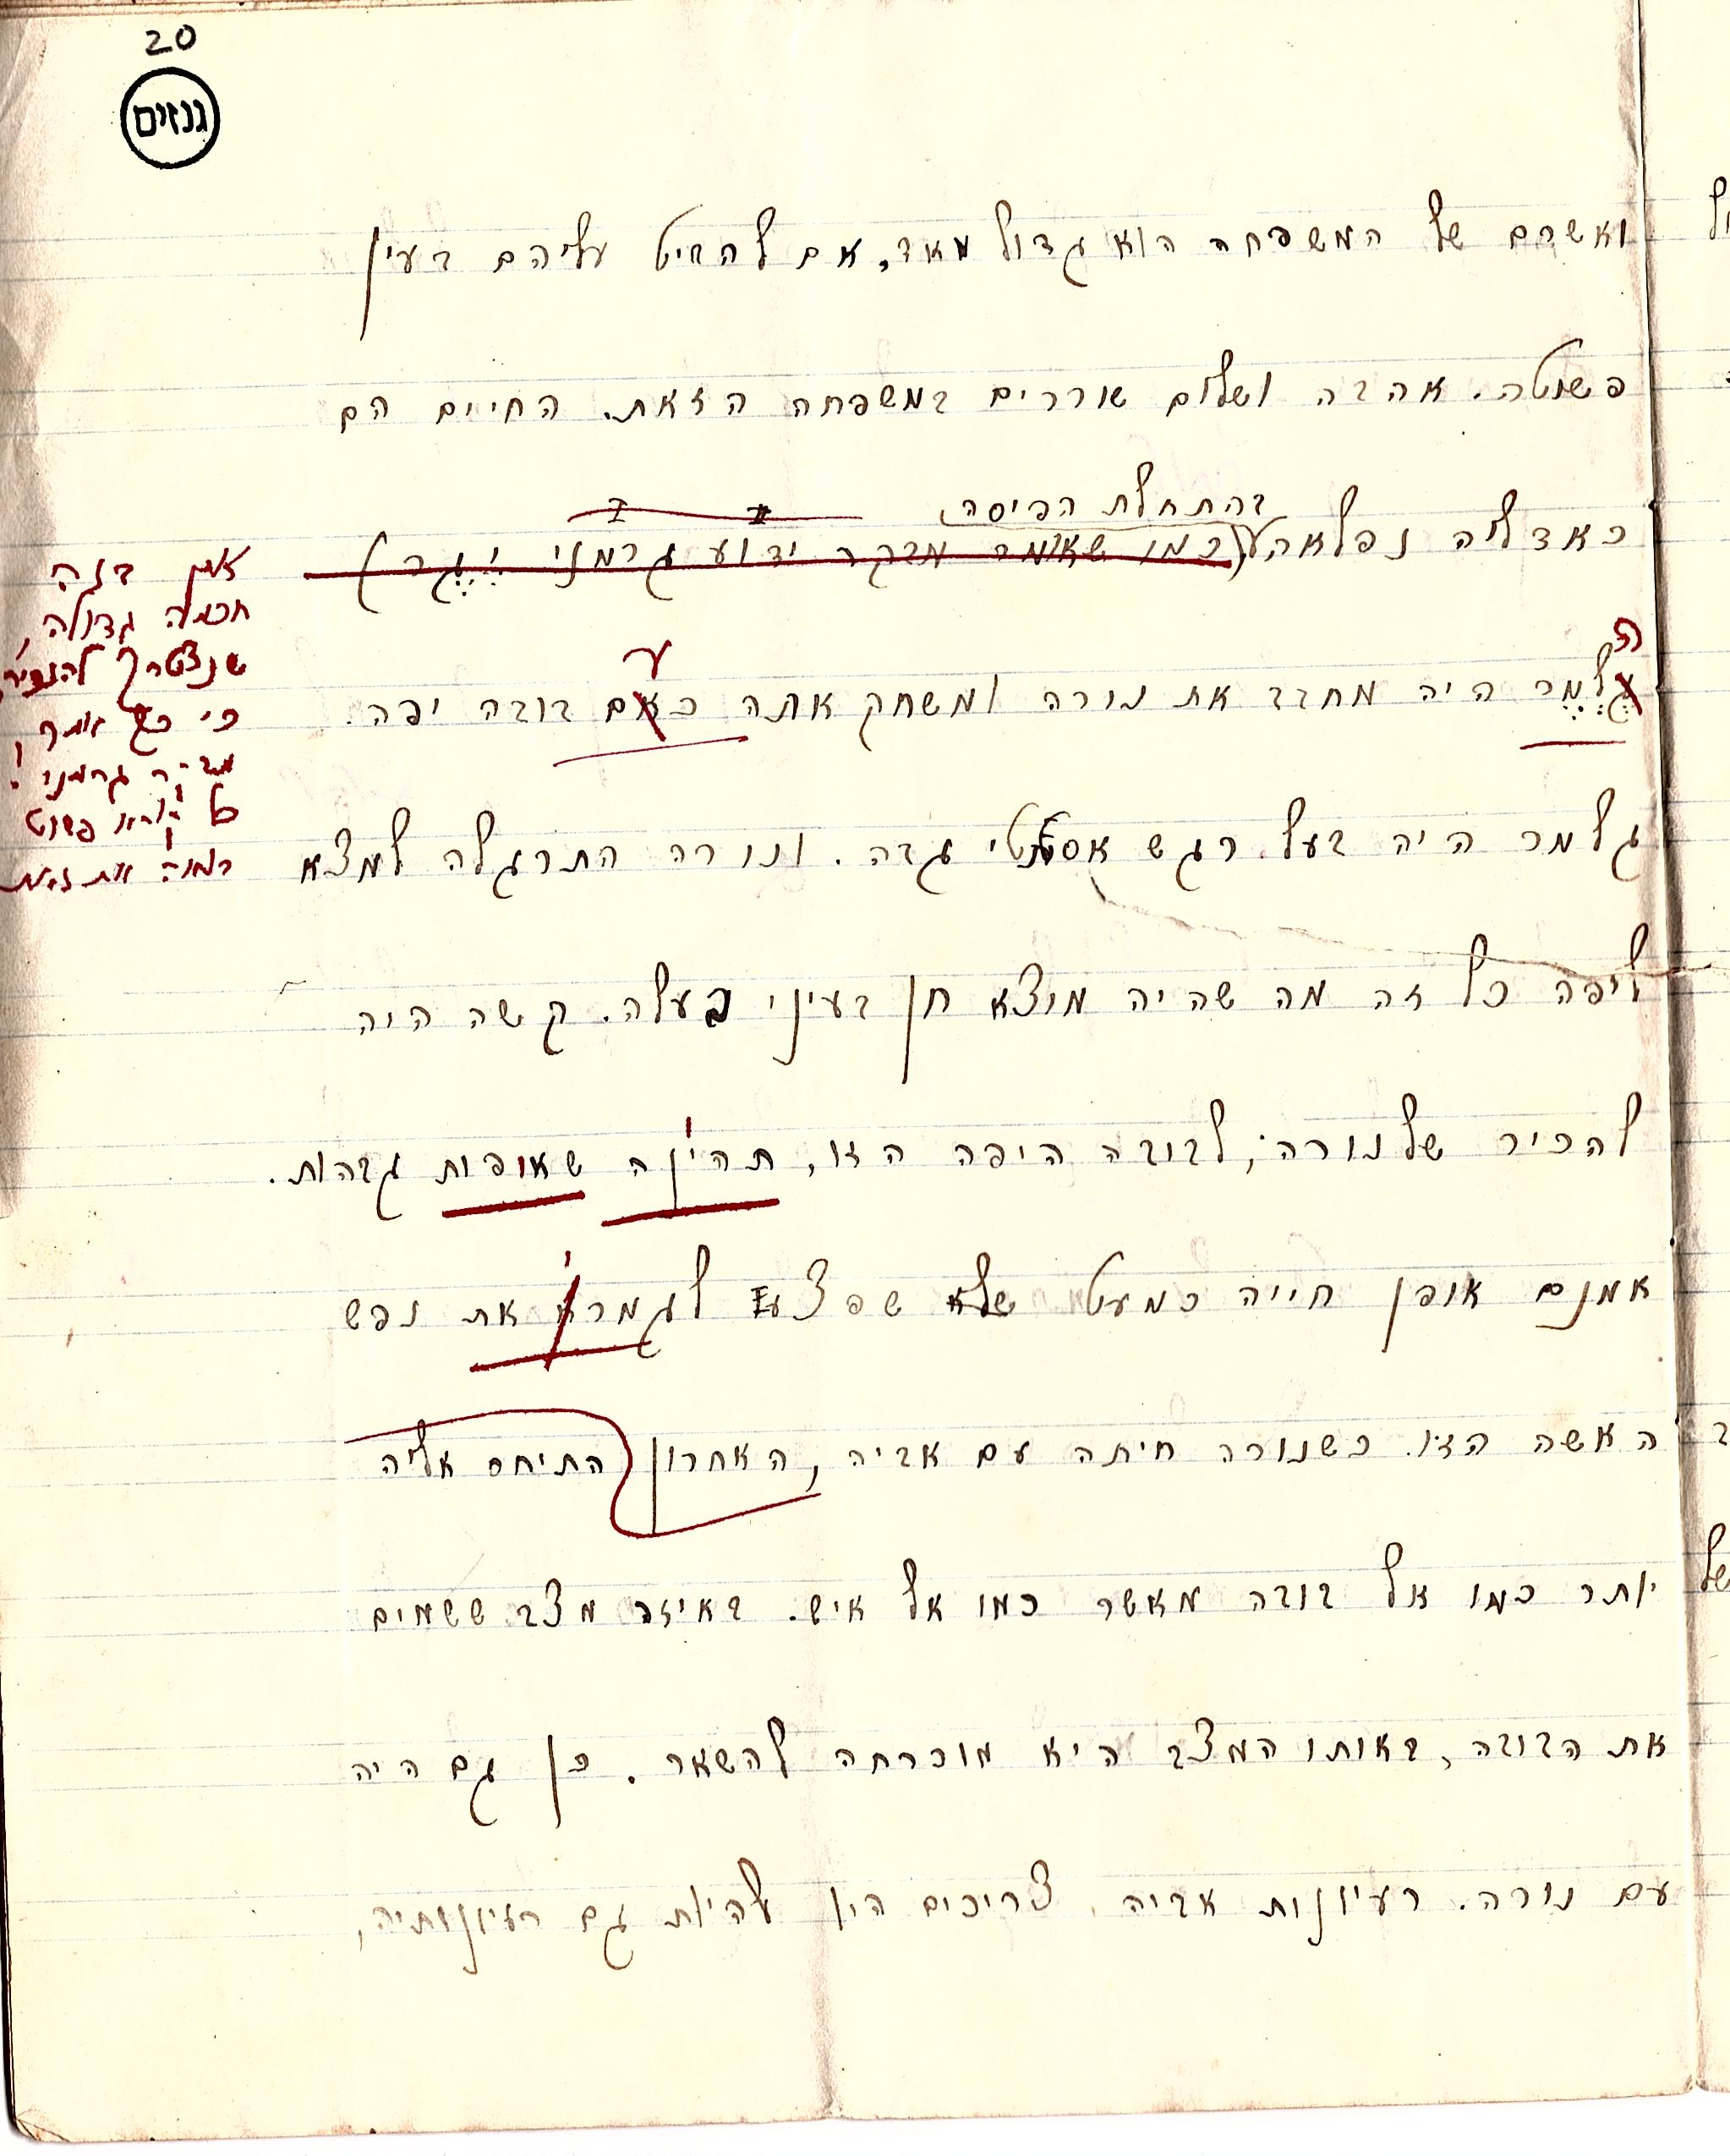 20
גנזים
ואשרם של המשפחה הוא גדול מאד, אם להביט עליהם בעין
פשוטה. אהבה ושלום שוררים במשפחה הזאת. החיים הם
בהתחלת הפיסה
כאדליה נפלאה (כמו שאומר מבקר ידוע גרמני יֶגֶר)
ה
גֶלְמֶר היה מחבב את נורה ומשחק אתה כאם בובה יפה.
ע
גלמר היה בעל רגש אסטטי גבה. ונורה התרגלה למצא
ליפה כל זה מה שהיה מוצא חן בעיני בעלה. קשה היה
להכיר שלנורה, לבובה היפה הזו, תהינה שאופות גבהות.
אמנם אופן חייה כמעט שלא פצע לגמרא את נפש
האשה הזו. כשנורה חיתה עם אביה, האחרון התיחס אליה
יותר כמו אל בובה מאשר כמו אל איש. באיזה מצב ששמים
את הבובה, באותו המצב היא מוכרחה להשאר. כן גם היה
עם נורה. רעיונות אביה צריכים היו להיות גם רעיונותיה,
אין בזה
חכמה גדולה,
שנצטרך להגיד
כי כך אומר
מבקר גרמני!
כל קורא פשוט
רואה את זאת